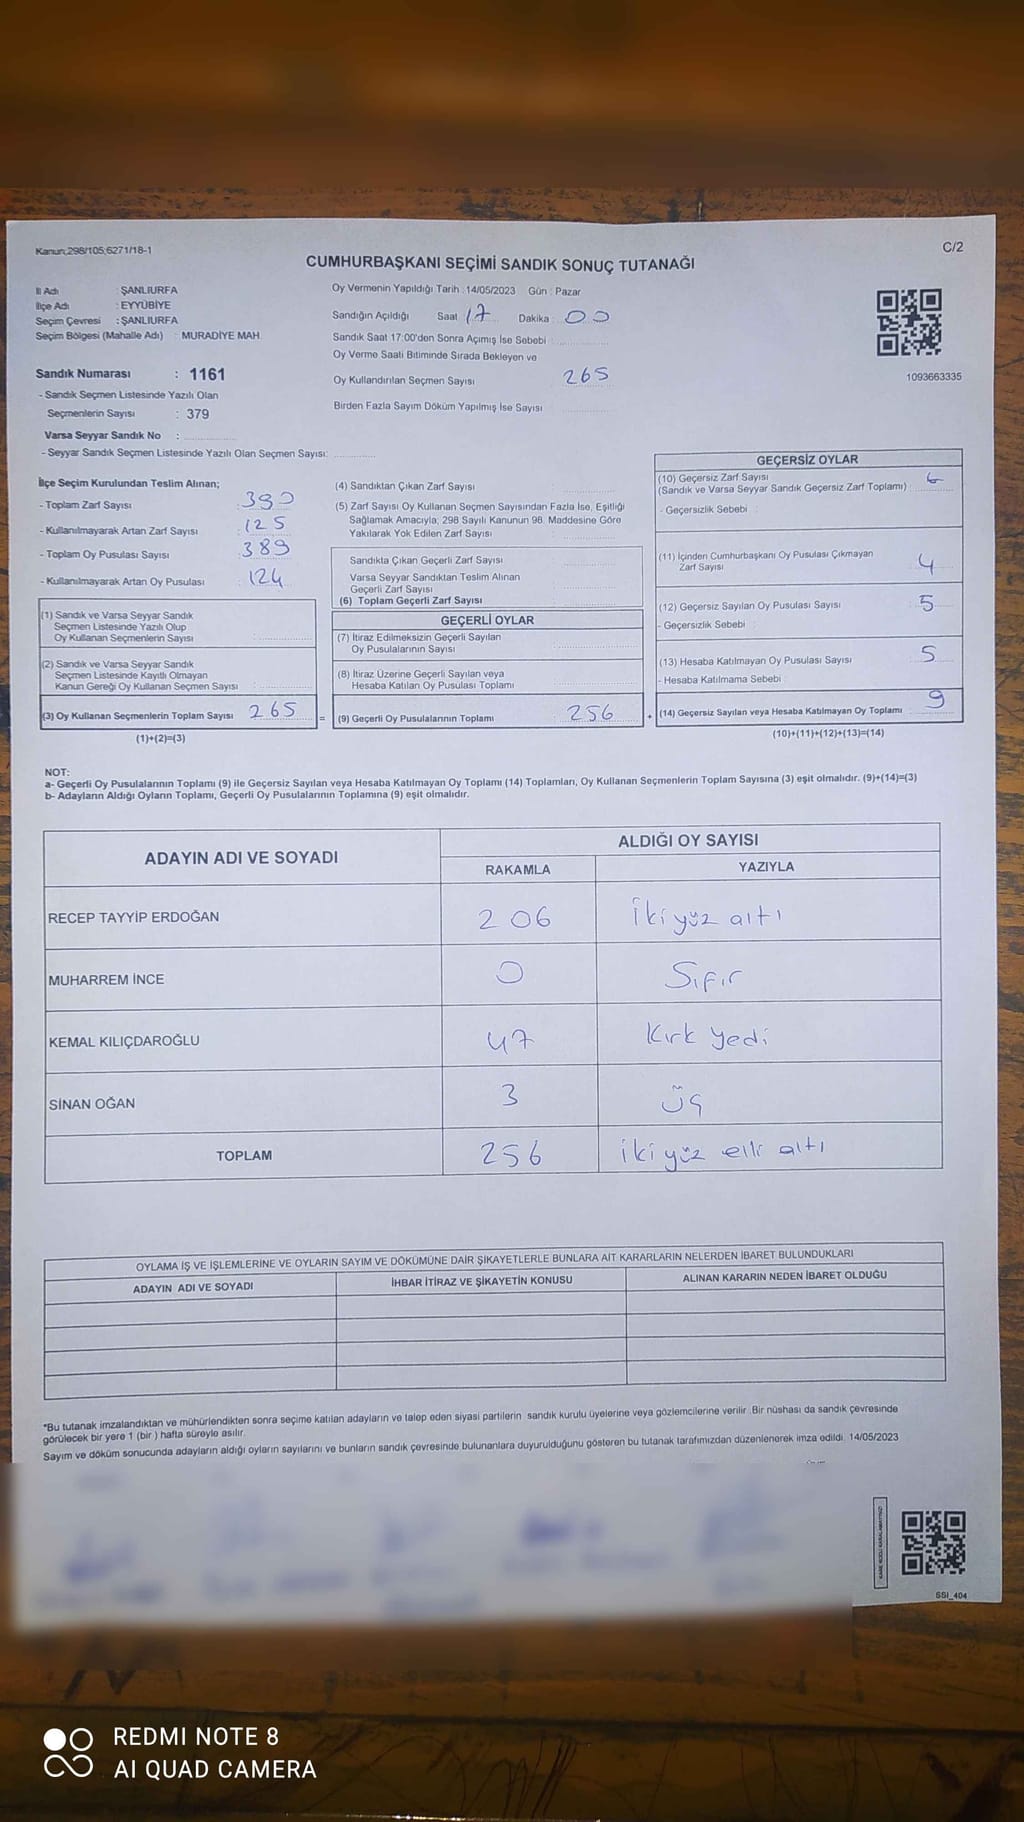 Kanun;298/105;6271/18-1
C/2
CUMHURBAŞKANI SEÇİMİ SANDIK SONUÇ TUTANAĞI
İl Adı : ŞANLIURFA
İlçe Adı : EYYÜBİYE
Seçim Çevresi : ŞANLIURFA
Seçim Bölgesi (Mahalle Adı) : MURADİYE MAH.
Sandık Numarası : 1161
- Sandık Seçmen Listesinde Yazılı Olan
Seçmenlerin Sayısı : 379
Varsa Seyyar Sandık No :
- Seyyar Sandık Seçmen Listesinde Yazılı Olan Seçmen Sayısı:
Oy Vermenin Yapıldığı Tarih : 14/05/2023 Gün : Pazar
Sandığın Açıldığı Saat 17 Dakika : 00
Sandık Saat 17:00'den Sonra Açımış İse Sebebi
Oy Verme Saati Bitiminde Sırada Bekleyen ve
Oy Kullandırılan Seçmen Sayısı 265
Birden Fazla Sayım Döküm Yapılmış İse Sayısı
1093663335
İlçe Seçim Kurulundan Teslim Alınan;
- Toplam Zarf Sayısı : 390
- Kullanılmayarak Artan Zarf Sayısı : 125
- Toplam Oy Pusulası Sayısı : 389
- Kullanılmayarak Artan Oy Pusulası : 124
(1) Sandık ve Varsa Seyyar Sandık
Seçmen Listesinde Yazılı Olup
Oy Kullanan Seçmenlerin Sayısı :
(2) Sandık ve Varsa Seyyar Sandık
Seçmen Listesinde Kayıtlı Olmayan
Kanun Gereği Oy Kullanan Seçmen Sayısı :
(3) Oy Kullanan Seçmenlerin Toplam Sayısı 265 =
(1)+(2)=(3)
(4) Sandıktan Çıkan Zarf Sayısı
(5) Zarf Sayısı Oy Kullanan Seçmen Sayısından Fazla İse, Eşitliği
Sağlamak Amacıyla; 298 Sayılı Kanunun 98. Maddesine Göre
Yakılarak Yok Edilen Zarf Sayısı
Sandıkta Çıkan Geçerli Zarf Sayısı
Varsa Seyyar Sandıktan Teslim Alınan
Geçerli Zarf Sayısı
(6) Toplam Geçerli Zarf Sayısı
GEÇERLİ OYLAR
(7) İtiraz Edilmeksizin Geçerli Sayılan
Oy Pusulalarının Sayısı
(8) İtiraz Üzerine Geçerli Sayılan veya
Hesaba Katılan Oy Pusulası Toplamı
(9) Geçerli Oy Pusulalarının Toplamı 256 +
GEÇERSİZ OYLAR
(10) Geçersiz Zarf Sayısı
(Sandık ve Varsa Seyyar Sandık Geçersiz Zarf Toplamı)
- Geçersizlik Sebebi :
(11) İçinden Cumhurbaşkanı Oy Pusulası Çıkmayan
Zarf Sayısı 4
(12) Geçersiz Sayılan Oy Pusulası Sayısı 5
- Geçersizlik Sebebi :
(13) Hesaba Katılmayan Oy Pusulası Sayısı 5
- Hesaba Katılmama Sebebi :
(14) Geçersiz Sayılan veya Hesaba Katılmayan Oy Toplamı : 9
(10)+(11)+(12)+(13)=(14)
NOT:
a- Geçerli Oy Pusulalarının Toplamı (9) ile Geçersiz Sayılan veya Hesaba Katılmayan Oy Toplamı (14) Toplamları, Oy Kullanan Seçmenlerin Toplam Sayısına (3) eşit olmalıdır. (9)+(14)=(3)
b- Adayların Aldığı Oyların Toplamı, Geçerli Oy Pusulalarının Toplamına (9) eşit olmalıdır.
ADAYIN ADI VE SOYADI
ALDIĞI OY SAYISI
RAKAMLA YAZIYLA
RECEP TAYYİP ERDOĞAN 206 İkiyüz altı
MUHARREM İNCE 0 Sıfır
KEMAL KILIÇDAROĞLU 47 Kırk yedi
SİNAN OĞAN 3 üç
TOPLAM 256 ikiyüz elli altı
OYLAMA İŞ VE İŞLEMLERİNE VE OYLARIN SAYIM VE DÖKÜMÜNE DAİR ŞİKAYETLERLE BUNLARA AİT KARARLARIN NELERDEN İBARET BULUNDUKLARI
ADAYIN ADI VE SOYADI İHBAR İTİRAZ VE ŞİKAYETİN KONUSU ALINAN KARARIN NEDEN İBARET OLDUĞU
*Bu tutanak imzalandıktan ve mühürlendikten sonra seçime katılan adayların ve talep eden siyasi partilerin sandık kurulu üyelerine veya gözlemcilerine verilir. Bir nüshası da sandık çevresinde
görülecek bir yere 1 (bir ) hafta süreyle asılır.
Sayım ve döküm sonucunda adayların aldığı oyların sayılarını ve bunların sandık çevresinde bulunanlara duyurulduğunu gösteren bu tutanak tarafımızdan düzenlenerek imza edildi. 14/05/2023
SSI_404
REDMI NOTE 8
AI QUAD CAMERA